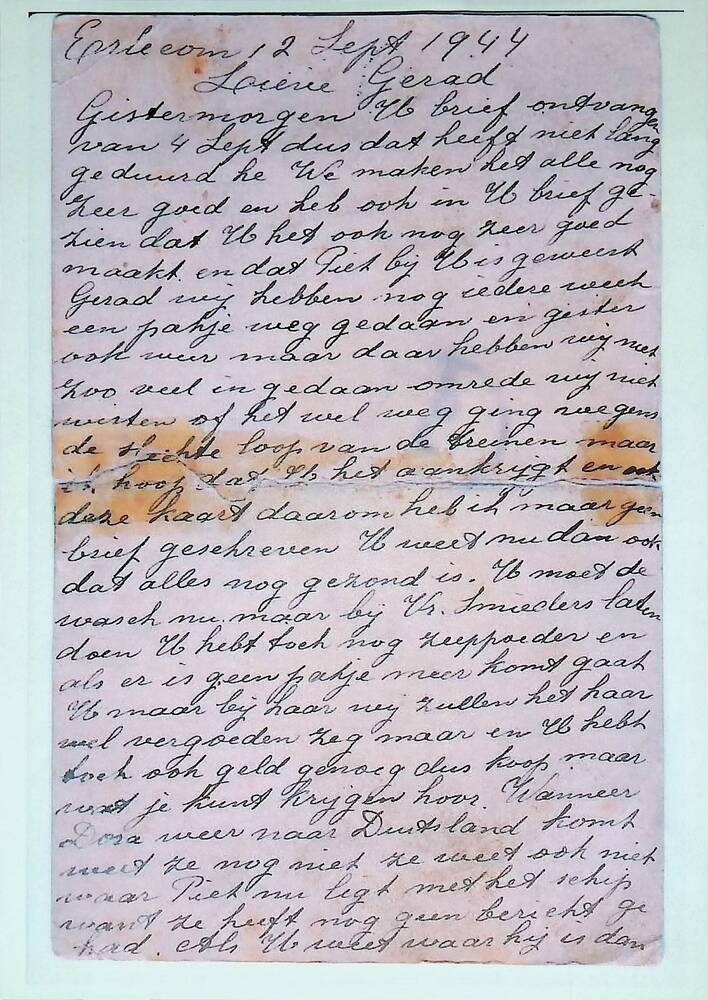 Erlecom 12 Sept 1944
Lieve Gerad
Gistermorgen U brief ontvangen
van 4 Sept dus dat heeft niet lang
geduurd he We maken het alle nog
zeer goed en heb ook in U brief ge-
zien dat U het ook nog zeer goed
maakt en dat Piet bij U is geweest
Gerad wij hebben nog iedere week
een pakje weg gedaan en gister
ook weer maar daar hebben wij niet
zoo veel in gedaan omrede wij niet
wisten of het wel weg ging wegens
de slechte loop van de treinen maar
ik hoop dat U het aankrijgt en ook
deze kaart daarom heb ik maar geen
brief geschreven U weet nu dan ook
dat alles nog gezond is. U moet de
wasch nu maar bij Vr. Smieders laten
doen U hebt toch nog zeeppoeder en
als er is geen pakje meer komt gaat
U maar bij haar wij zullen het haar
wel vergoeden zeg maar en U hebt
toch ook geld genoeg dus koop maar
wat je kunt krijgen hoor. Wanneer
Dora weer naar Duitsland komt
weet ze nog niet ze weet ook niet
waar Piet nu ligt met het schip
want ze heeft nog geen bericht ge
had. Als U weet waar hij is dan